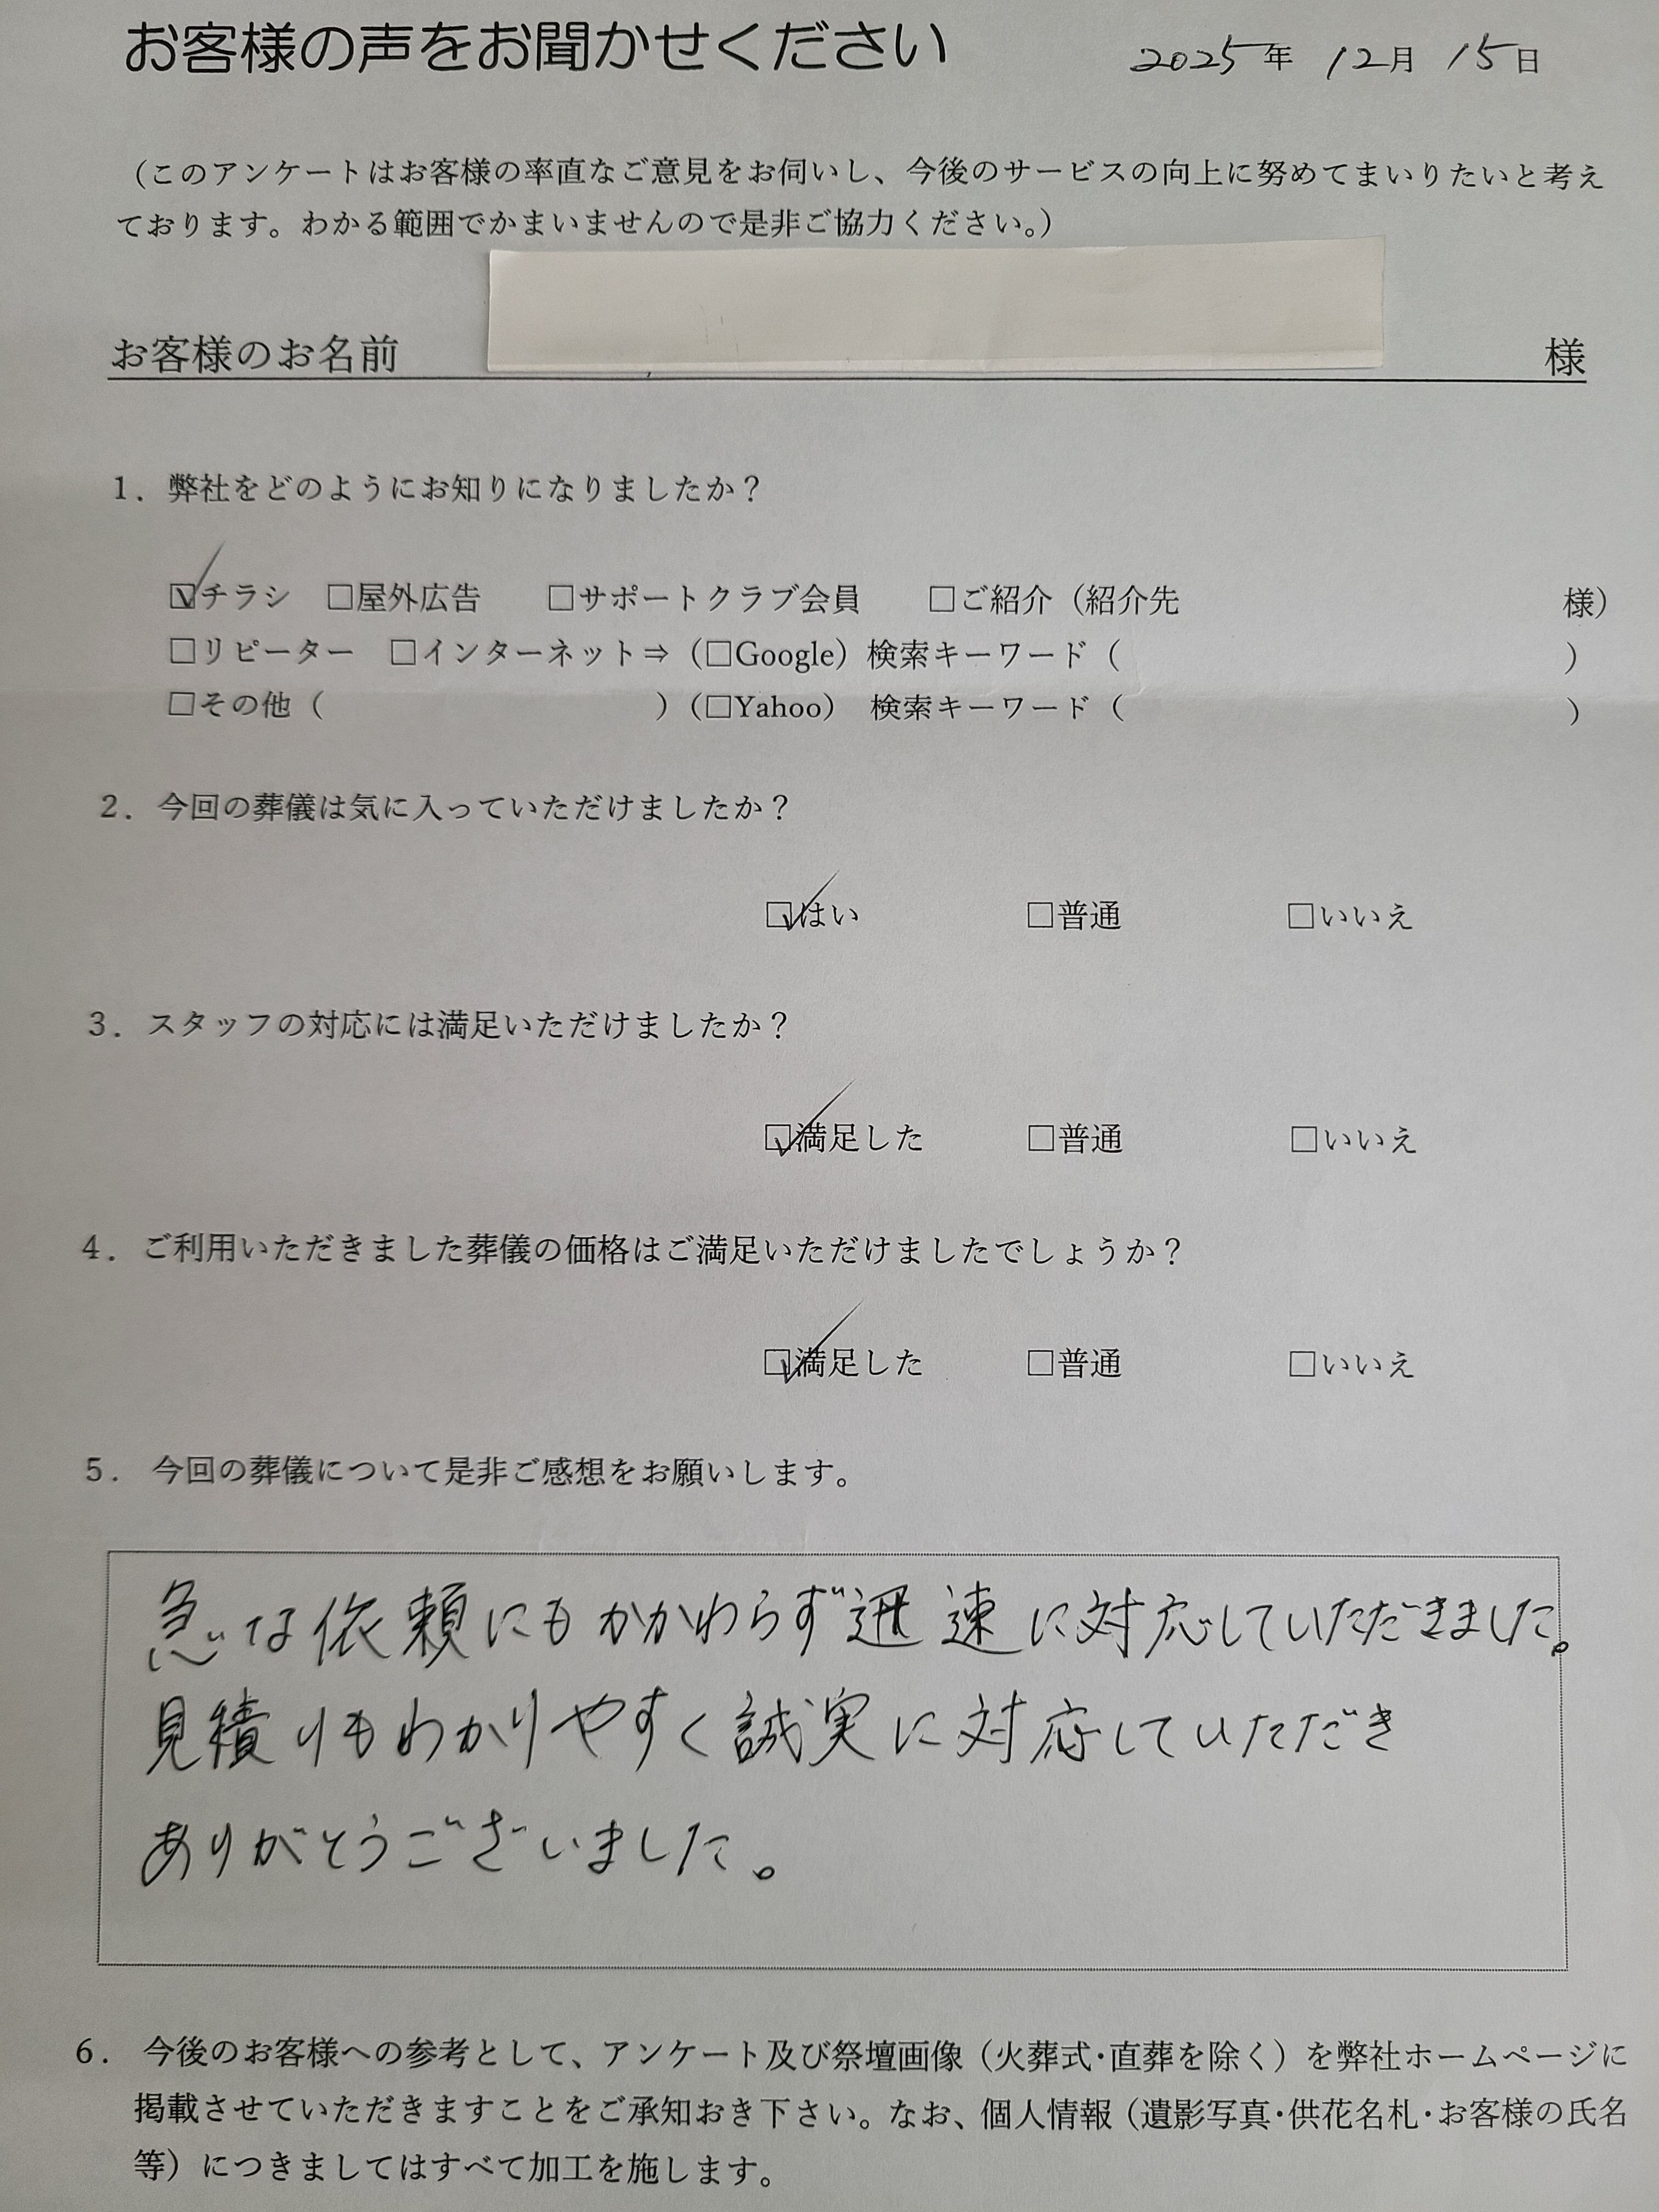 お客様の声をお聞かせください 2025年 12月 15日
（このアンケートはお客様の率直なご意見をお伺いし、今後のサービスの向上に努めてまいりたいと考え
ております。わかる範囲でかまいませんので是非ご協力ください。）
お客様のお名前 様
1．弊社をどのようにお知りになりましたか？
☑チラシ □屋外広告 □サポートクラブ会員 □ご紹介（紹介先 様）
□リピーター □インターネット⇒（□Google）検索キーワード（ ）
□その他（ ）（□Yahoo） 検索キーワード（ ）
2．今回の葬儀は気に入っていただけましたか？
☑はい □普通 □いいえ
3．スタッフの対応には満足いただけましたか？
☑満足した □普通 □いいえ
4．ご利用いただきました葬儀の価格はご満足いただけましたでしょうか？
☑満足した □普通 □いいえ
5． 今回の葬儀について是非ご感想をお願いします。
急な依頼にもかかわらず迅速に対応していただきました。
見積りもわかりやすく誠実に対応していただき
ありがとうございました。
6． 今後のお客様への参考として、アンケート及び祭壇画像（火葬式・直葬を除く）を弊社ホームページに
掲載させていただきますことをご承知おき下さい。なお、個人情報（遺影写真・供花名札・お客様の氏名
等）につきましてはすべて加工を施します。